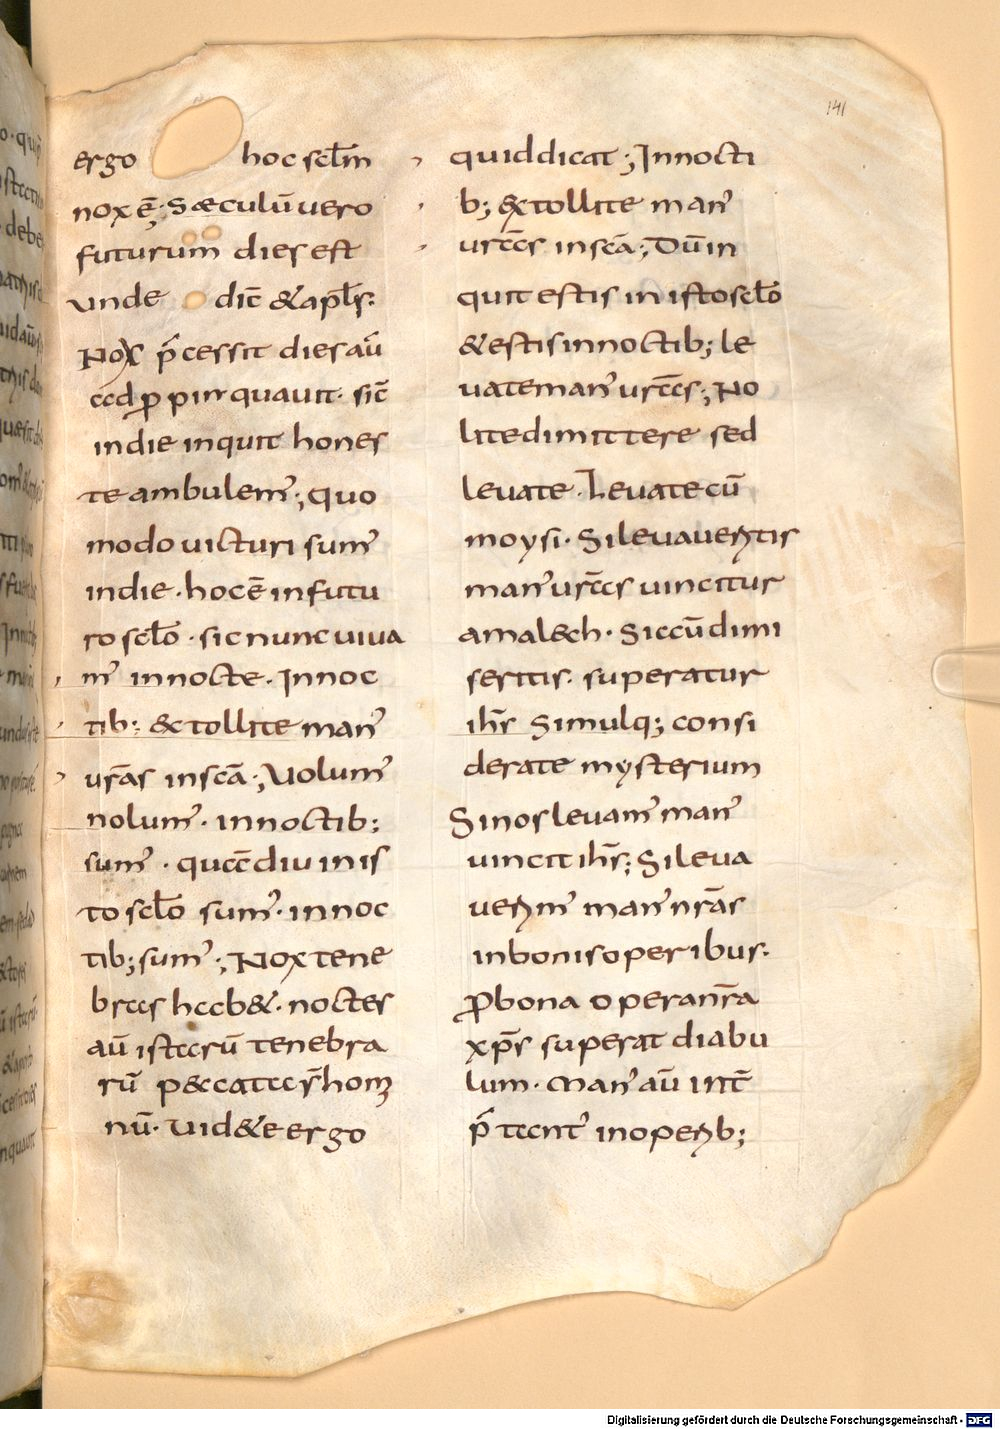 141
ergo hoc sclm̄
nox ē; sæculū uero
futurum dies est
unde dic̄ & apl̄s.
Nox p̄cessit dies aū
ad ꝓpinquauit. sic̄
in die inquit hones
te ambulem'; quo
modo uicturi sum'
in die. hoc ē in futu
ro sclō. sic nunc uiua
m' in nocte. In noc
tib; & tollite man'
ur̄as in sc̄a; Uolum'
nolum'. in noctib;
sum'. quamdiu in is
to sclō sum'. in noc
tib; sum'; Nox tene
bras hab&. noctes
aū istarū tenebra
rū p&cata s̄ homi
nū. Uid&e ergo
quid dicat; In nocti
b; & tollite man'
ur̄as in sc̄a; Dū in
quit estis in isto sclō
& estis in noctib; le
uate man' ur̄as; No
lite dimittere sed
leuate. Leuate cū
moysi. Si leuaueritis
man' ur̄as uincitur
amalech. Si eū dimi
seritis. superatur
ih̄s Simulq; consi
derate mysterium
Si nos leuam' man'
uincit ih̄s; Si leua
uerim' man' nr̄as
in bonis operibus.
ꝓ bona operanr̄a
xp̄s superat diabu
lum. Man' aū int̄
p̄tant' in operib;
Digitalisierung gefördert durch die Deutsche Forschungsgemeinschaft - DFG